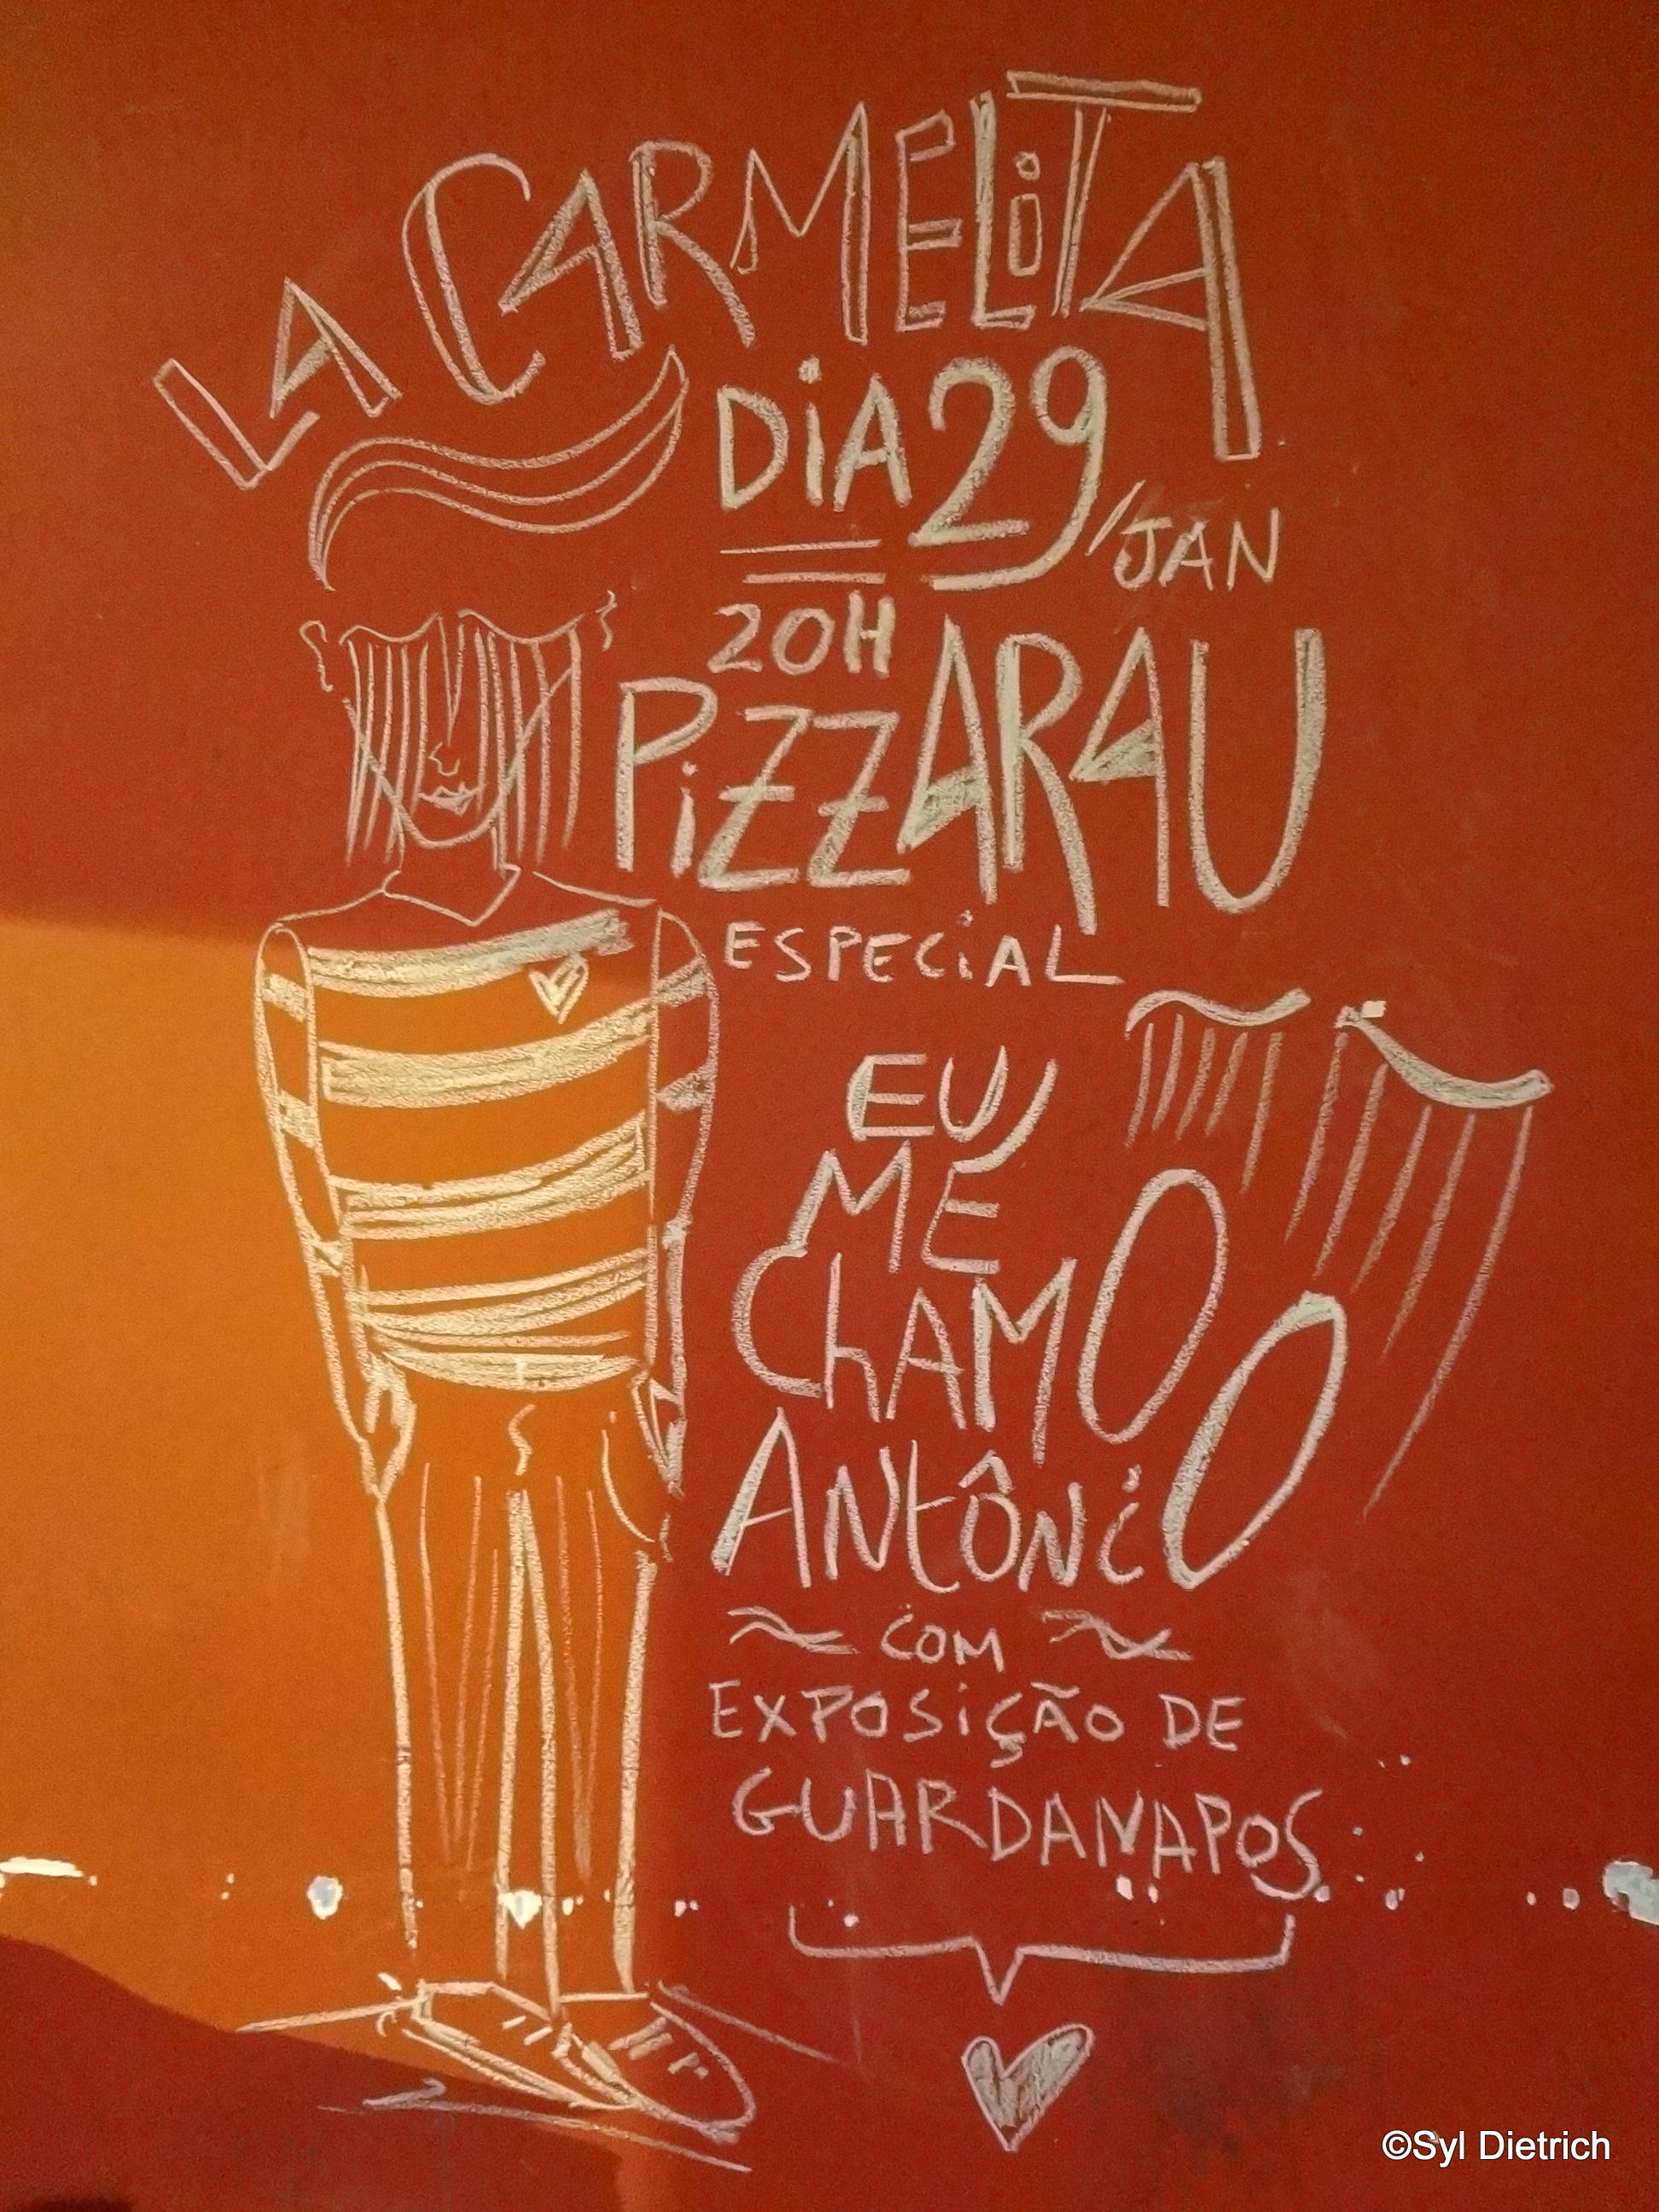 LA CARMELITA
DIA 29/JAN
20H
PIZZARAU
ESPECIAL
EU
ME
CHAMO
ANTÔNIO
~ COM ~
EXPOSIÇÃO DE
GUARDANAPOS
©Syl Dietrich